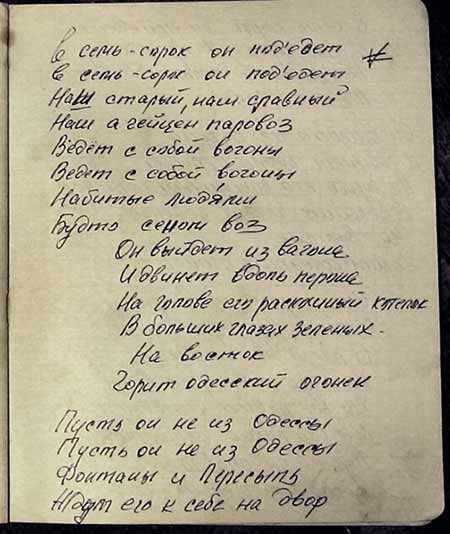 в семь-сорок он под'едет
в семь-сорок он под'едет
Наш старый, наш славный
Наш а гейцен паровоз
Ведет с собой вогоны
Ведет с собой вогоны
Набитые людями
Будто сеном воз
Он выйдет из вагона
И двинет вдоль перона
На голове его раскошный котелок
В больших глазах зеленых -
На восток
Горит одесский огонек
Пусть он не из Одессы
Пусть он не из Одессы
Фонтаны и Пересыпь
Ждут его к себе на двор